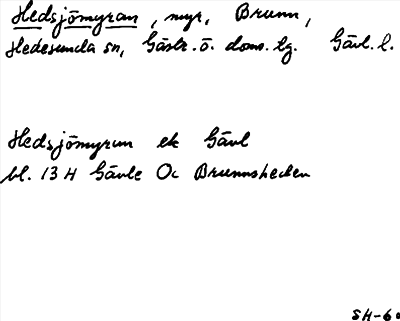 Hedsjömyran, myr, Brunn,
Hedesunda sn, Gästr. ö. doms. lg. Gävl. l.
Hedsjömyran ek Gävl
bl. 13 H Gävle Oc Brunnsheden
SH-60